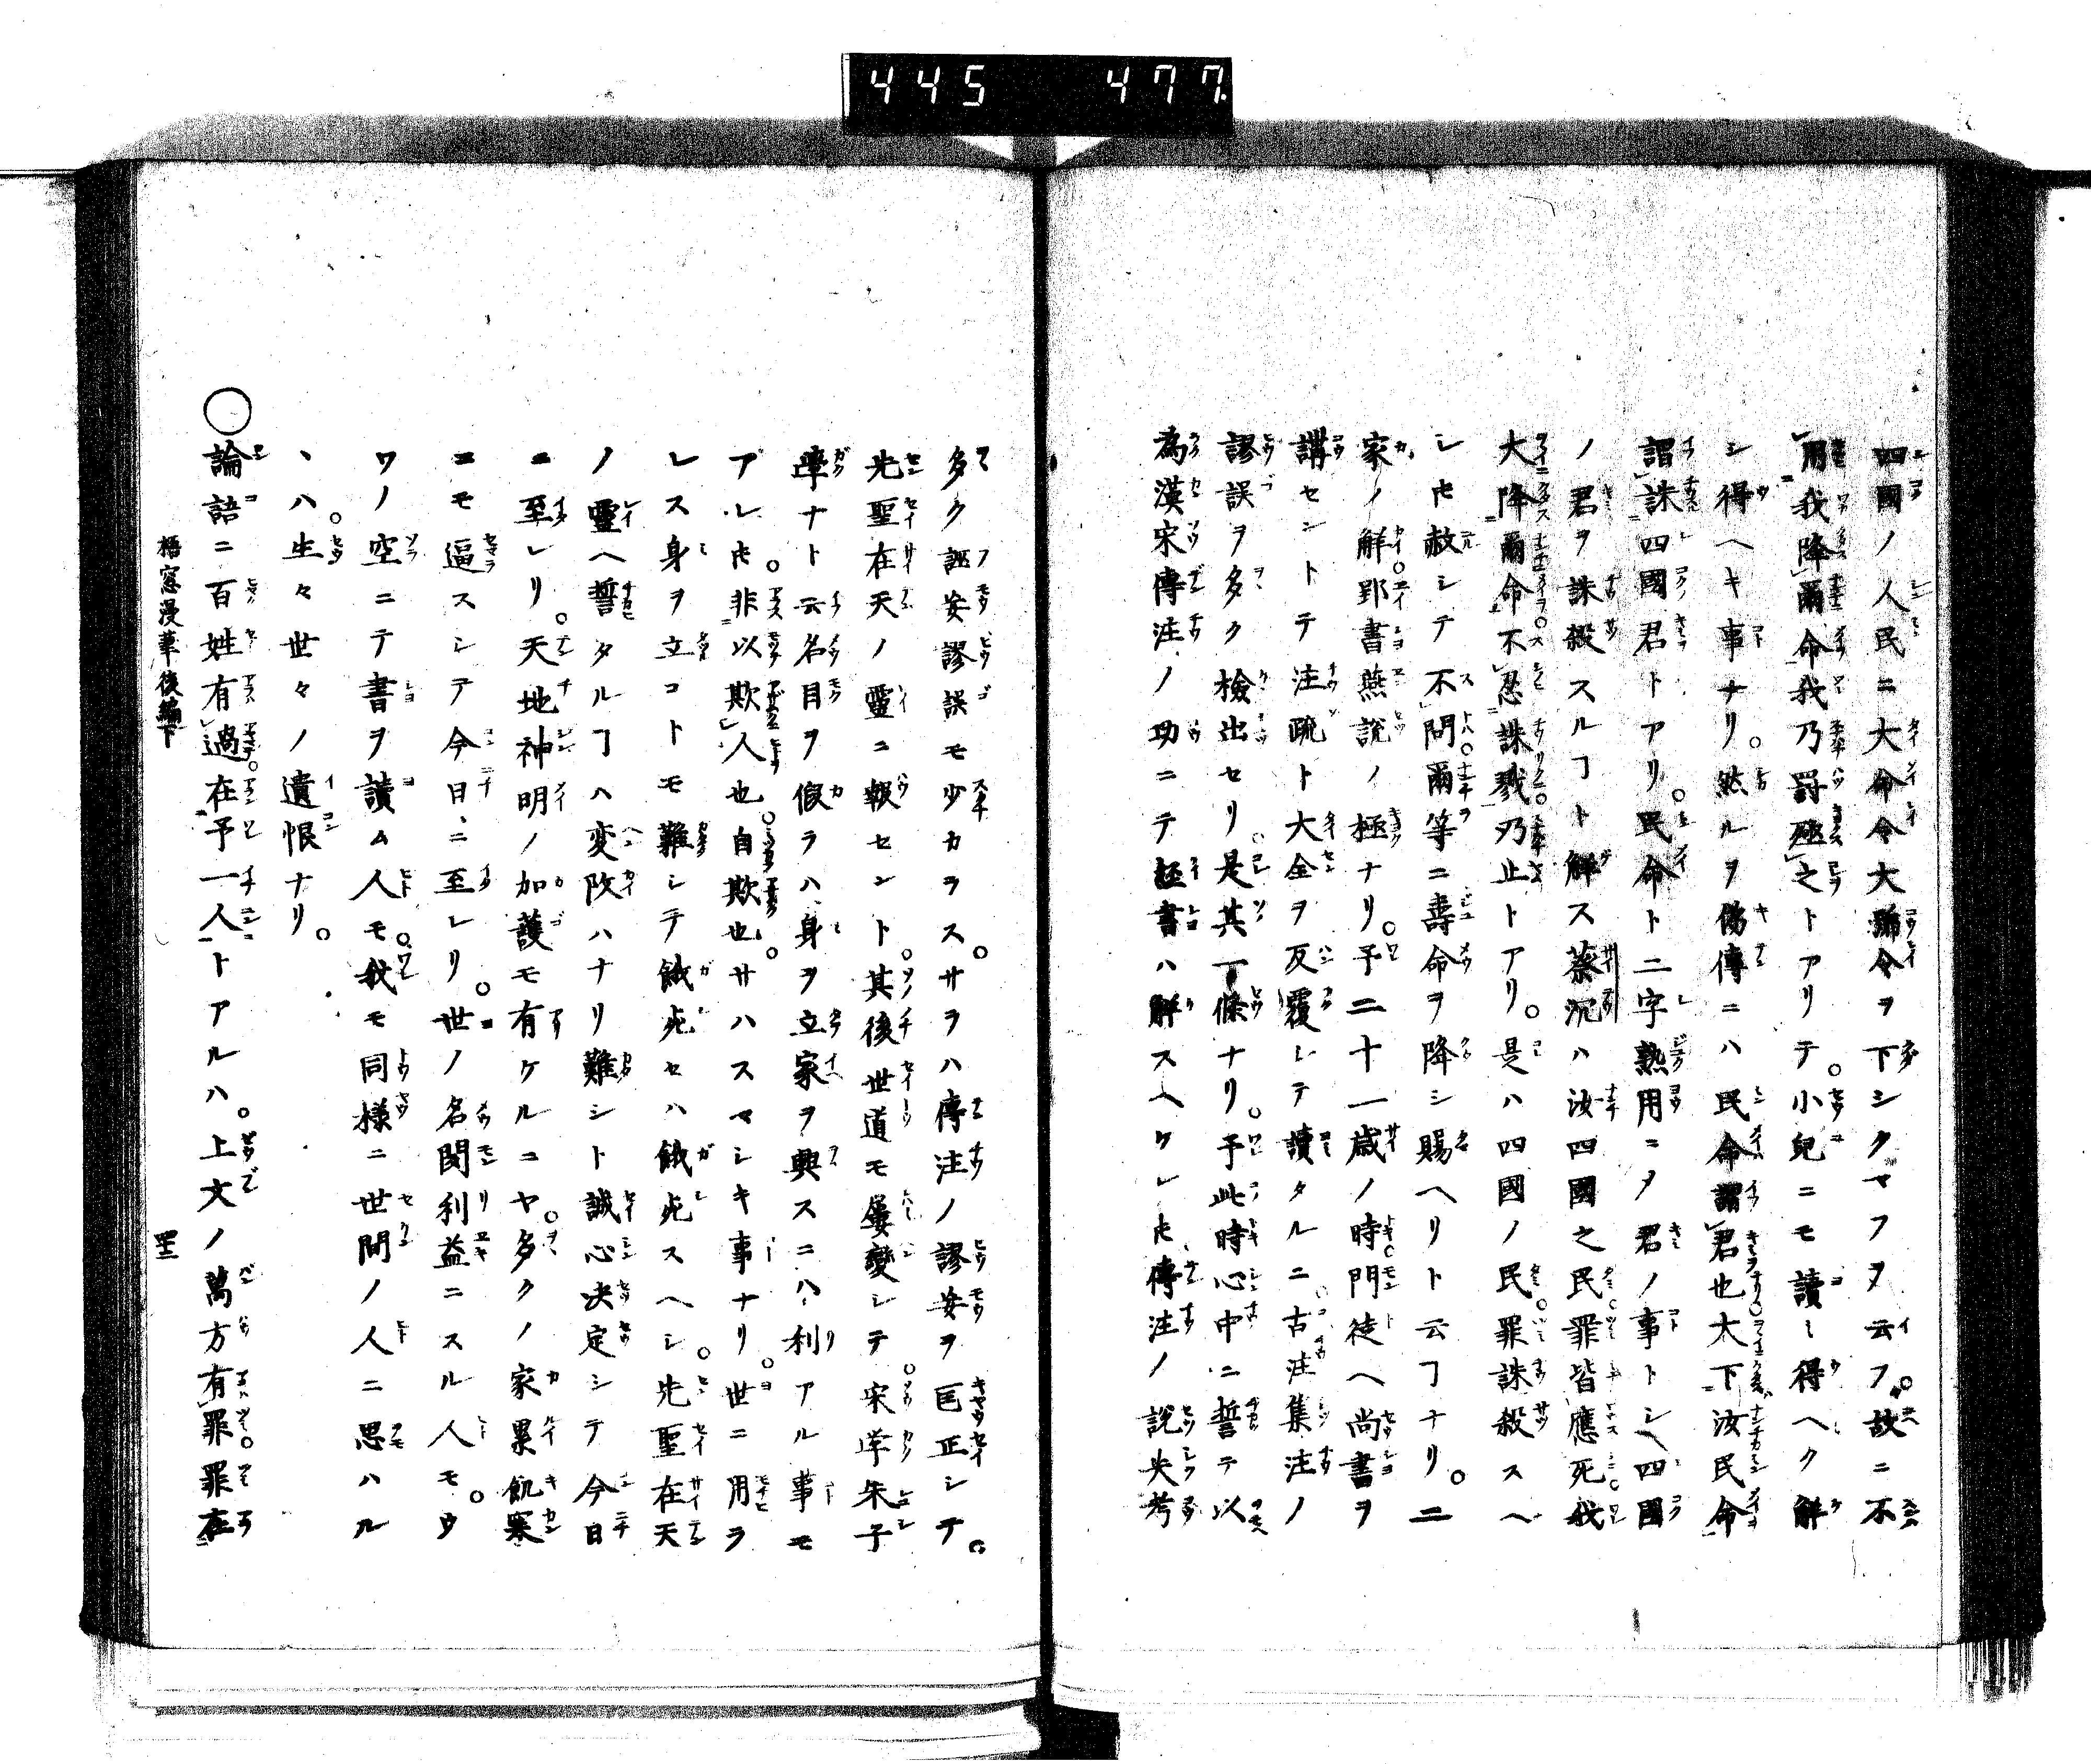 445 477
四國ノ人民ニ大命令大號令ヲ下シタマフヲ云フ。故ニ不
用我降爾命我乃罰殛之トアリテ。小兒ニモ讀ミ得ヘク解
シ得ヘキ事ナリ。然ルヲ偽傳ニハ民命謂君也大下汝民命
謂誅四國君トアリ。民命ト二字熟用ニメ君ノ事トシ四國
ノ君ヲ誅殺スルヿト解ス蔡沉ハ汝四國之民罪皆應死我
大降爾命不忍誅戮乃止トアリ。是ハ四國ノ民罪誅殺スヘ
シ𪜈赦シテ不問爾等ニ壽命ヲ降シ賜ヘリト云ヿナリ。二
家ノ解郢書燕說ノ極ナリ。予二十一歳ノ時門徒ヘ尚書ヲ
講セントテ注疏ト大全ヲ反覆シテ讀タルニ古注集注ノ
謬誤ヲ多ク檢出セリ。是其一條ナリ。予此時心中ニ誓テ以
為漢宋傳注ノ功ニテ經書ハ解スヘケレ𪜈傳注ノ說失考
多ク誣妄謬誤モ少カラス。サラハ傳注ノ謬妄ヲ匡正シテ。
先聖在天ノ靈ニ報セント。其後世道モ屢變シテ宋学朱子
学ナト云名目ヲ假ラハ身ヲ立家ヲ興スニハ利アル事モ
アレ𪜈非以欺人也自欺也。サハスマシキ事ナリ。世ニ用ラ
レス身ヲ立コトモ難シテ餓死セハ餓死スヘシ。先聖在天
ノ靈ヘ誓タルヿハ変改ハナリ難シト誠心决定シテ今日
ニ至レリ。天地神明ノ加護モ有ケルニヤ。多クノ家累飢寒
ニモ逼スシテ今日ニ至レリ。世ノ名聞利益ニスル人モ。ウ
ワノ空ニテ書ヲ讀ム人モ。我モ同様ニ世間ノ人ニ思ハル
ヽハ生々世々ノ遺恨ナリ。
○論語ニ百姓有過在予一人トアルハ。上文ノ萬方有罪罪在
梧窓漫筆後編下 四十三